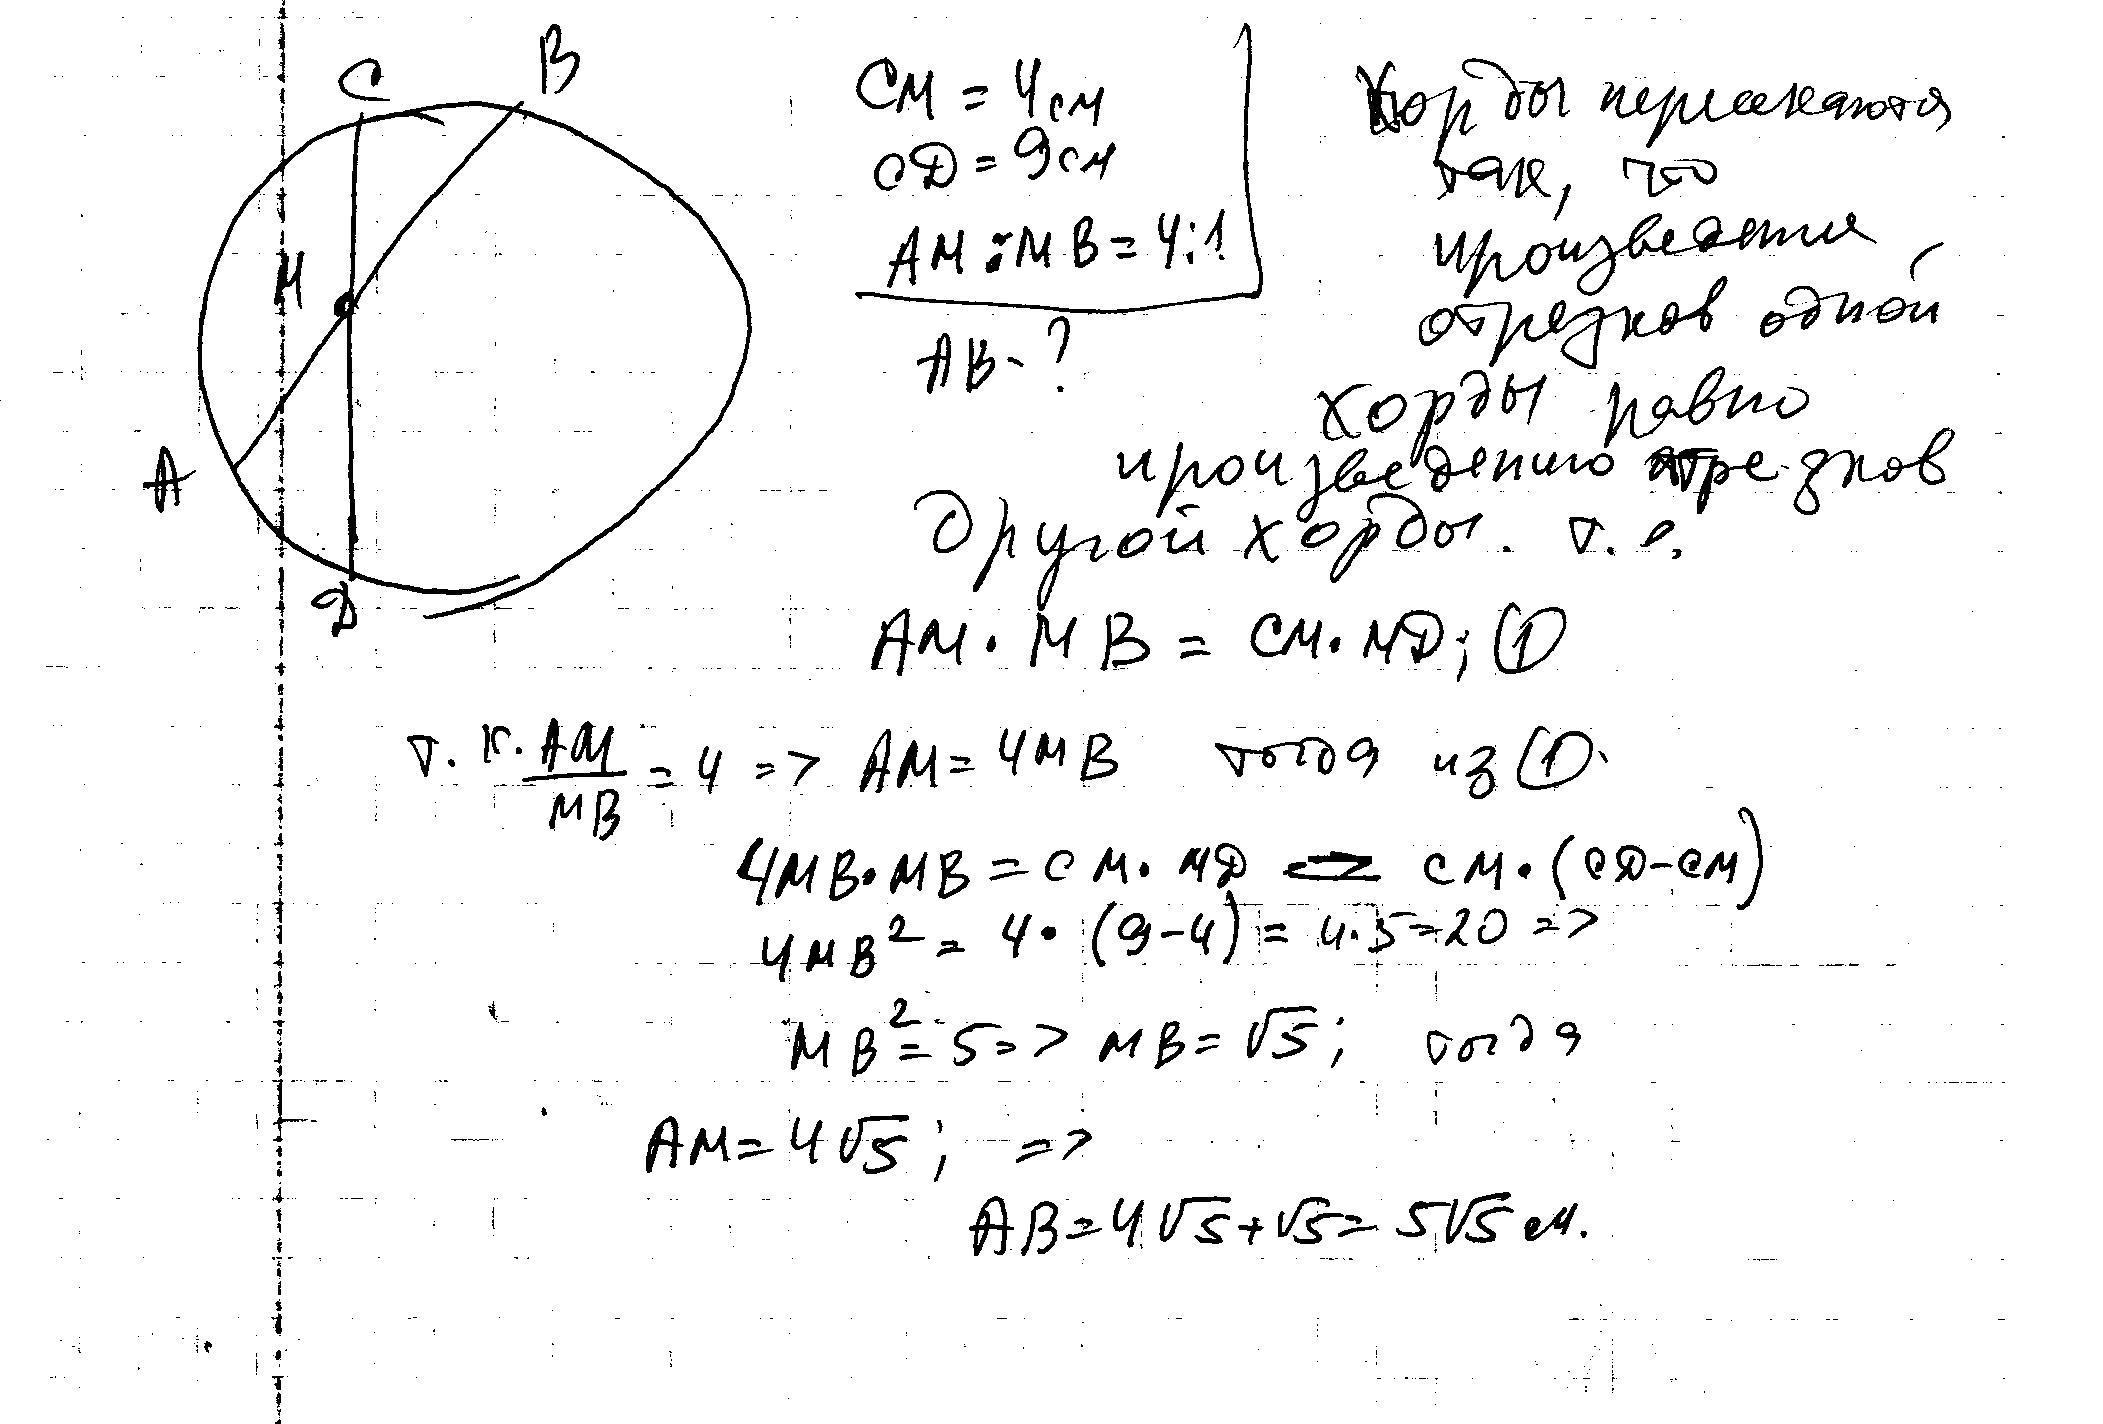 C
B
M
A
D
CM = 4см
CD = 9см
AM : MB = 4:1
AB - ?
Хорды пересекаются
так, что
произведения
отрезков одной
хорды равно
произведению отрезков
другой хорды. т.е.
AM · MB = CM · MD; ①
т.к. AM/MB = 4 => AM = 4MB тогда из ①.
4MB · MB = CM · MD = CM · (CD - CM)
4MB² = 4 · (9 - 4) = 4 · 5 = 20 =>
MB² = 5 => MB = √5; тогда
AM = 4√5; =>
AB = 4√5 + √5 = 5√5 см.